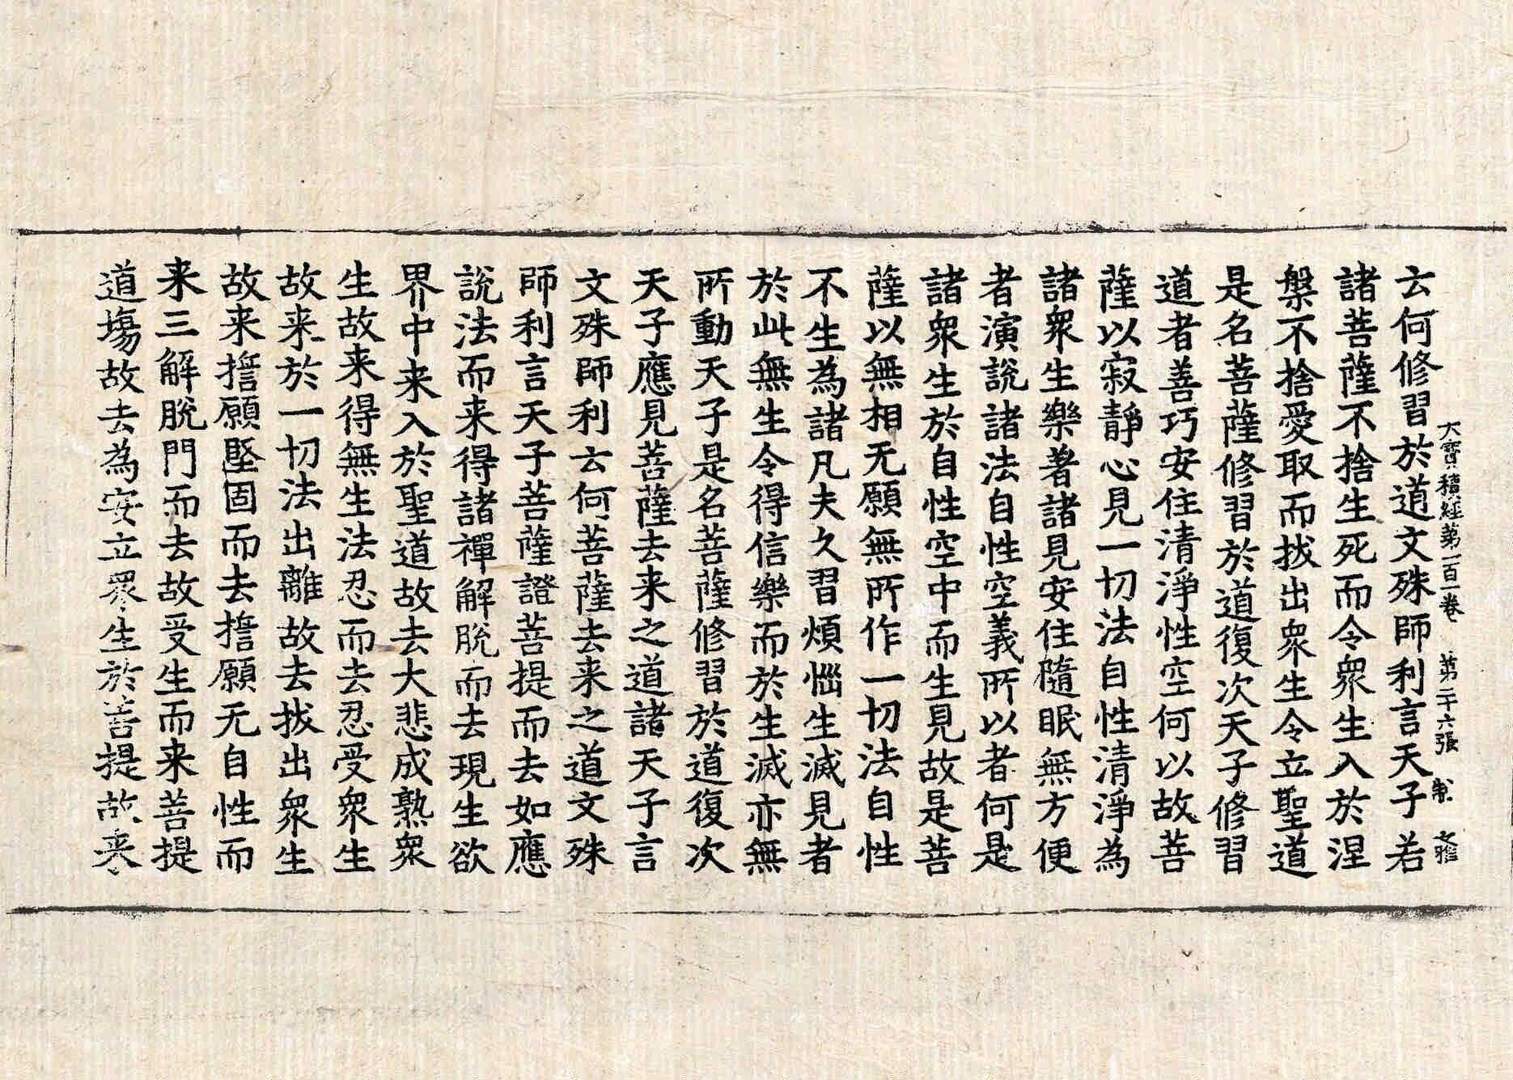 大寶積經第一百一卷 第二十六張 文雅
云何修習於道文殊師利言天子若
諸菩薩不捨生死而令衆生入於涅
槃不捨愛取而拔出衆生令立聖道
是名菩薩修習於道復次天子修習
道者善巧安住清淨性空何以故菩
薩以寂靜心見一切法自性清淨為
諸衆生樂著諸見安住隨眠無方便
者演說諸法自性空義所以者何是
諸衆生於自性空中而生見故是菩
薩以無相无願無所作一切法自性
不生為諸凡夫久習煩惱生滅見者
於此無生令得信樂而於生滅亦無
所動天子是名菩薩修習於道復次
天子應見菩薩去来之道諸天子言
文殊師利云何菩薩去来之道文殊
師利言天子菩薩證菩提而去如應
說法而来得諸禪解脫而去現生欲
界中来入於聖道故去大悲成熟衆
生故来得無生法忍而去忍受衆生
故来於一切法出離故去拔出衆生
故来擔願堅固而去擔願无自性而
来三解脫門而去故受生而来菩提
道場故去為安立衆生於菩提故来